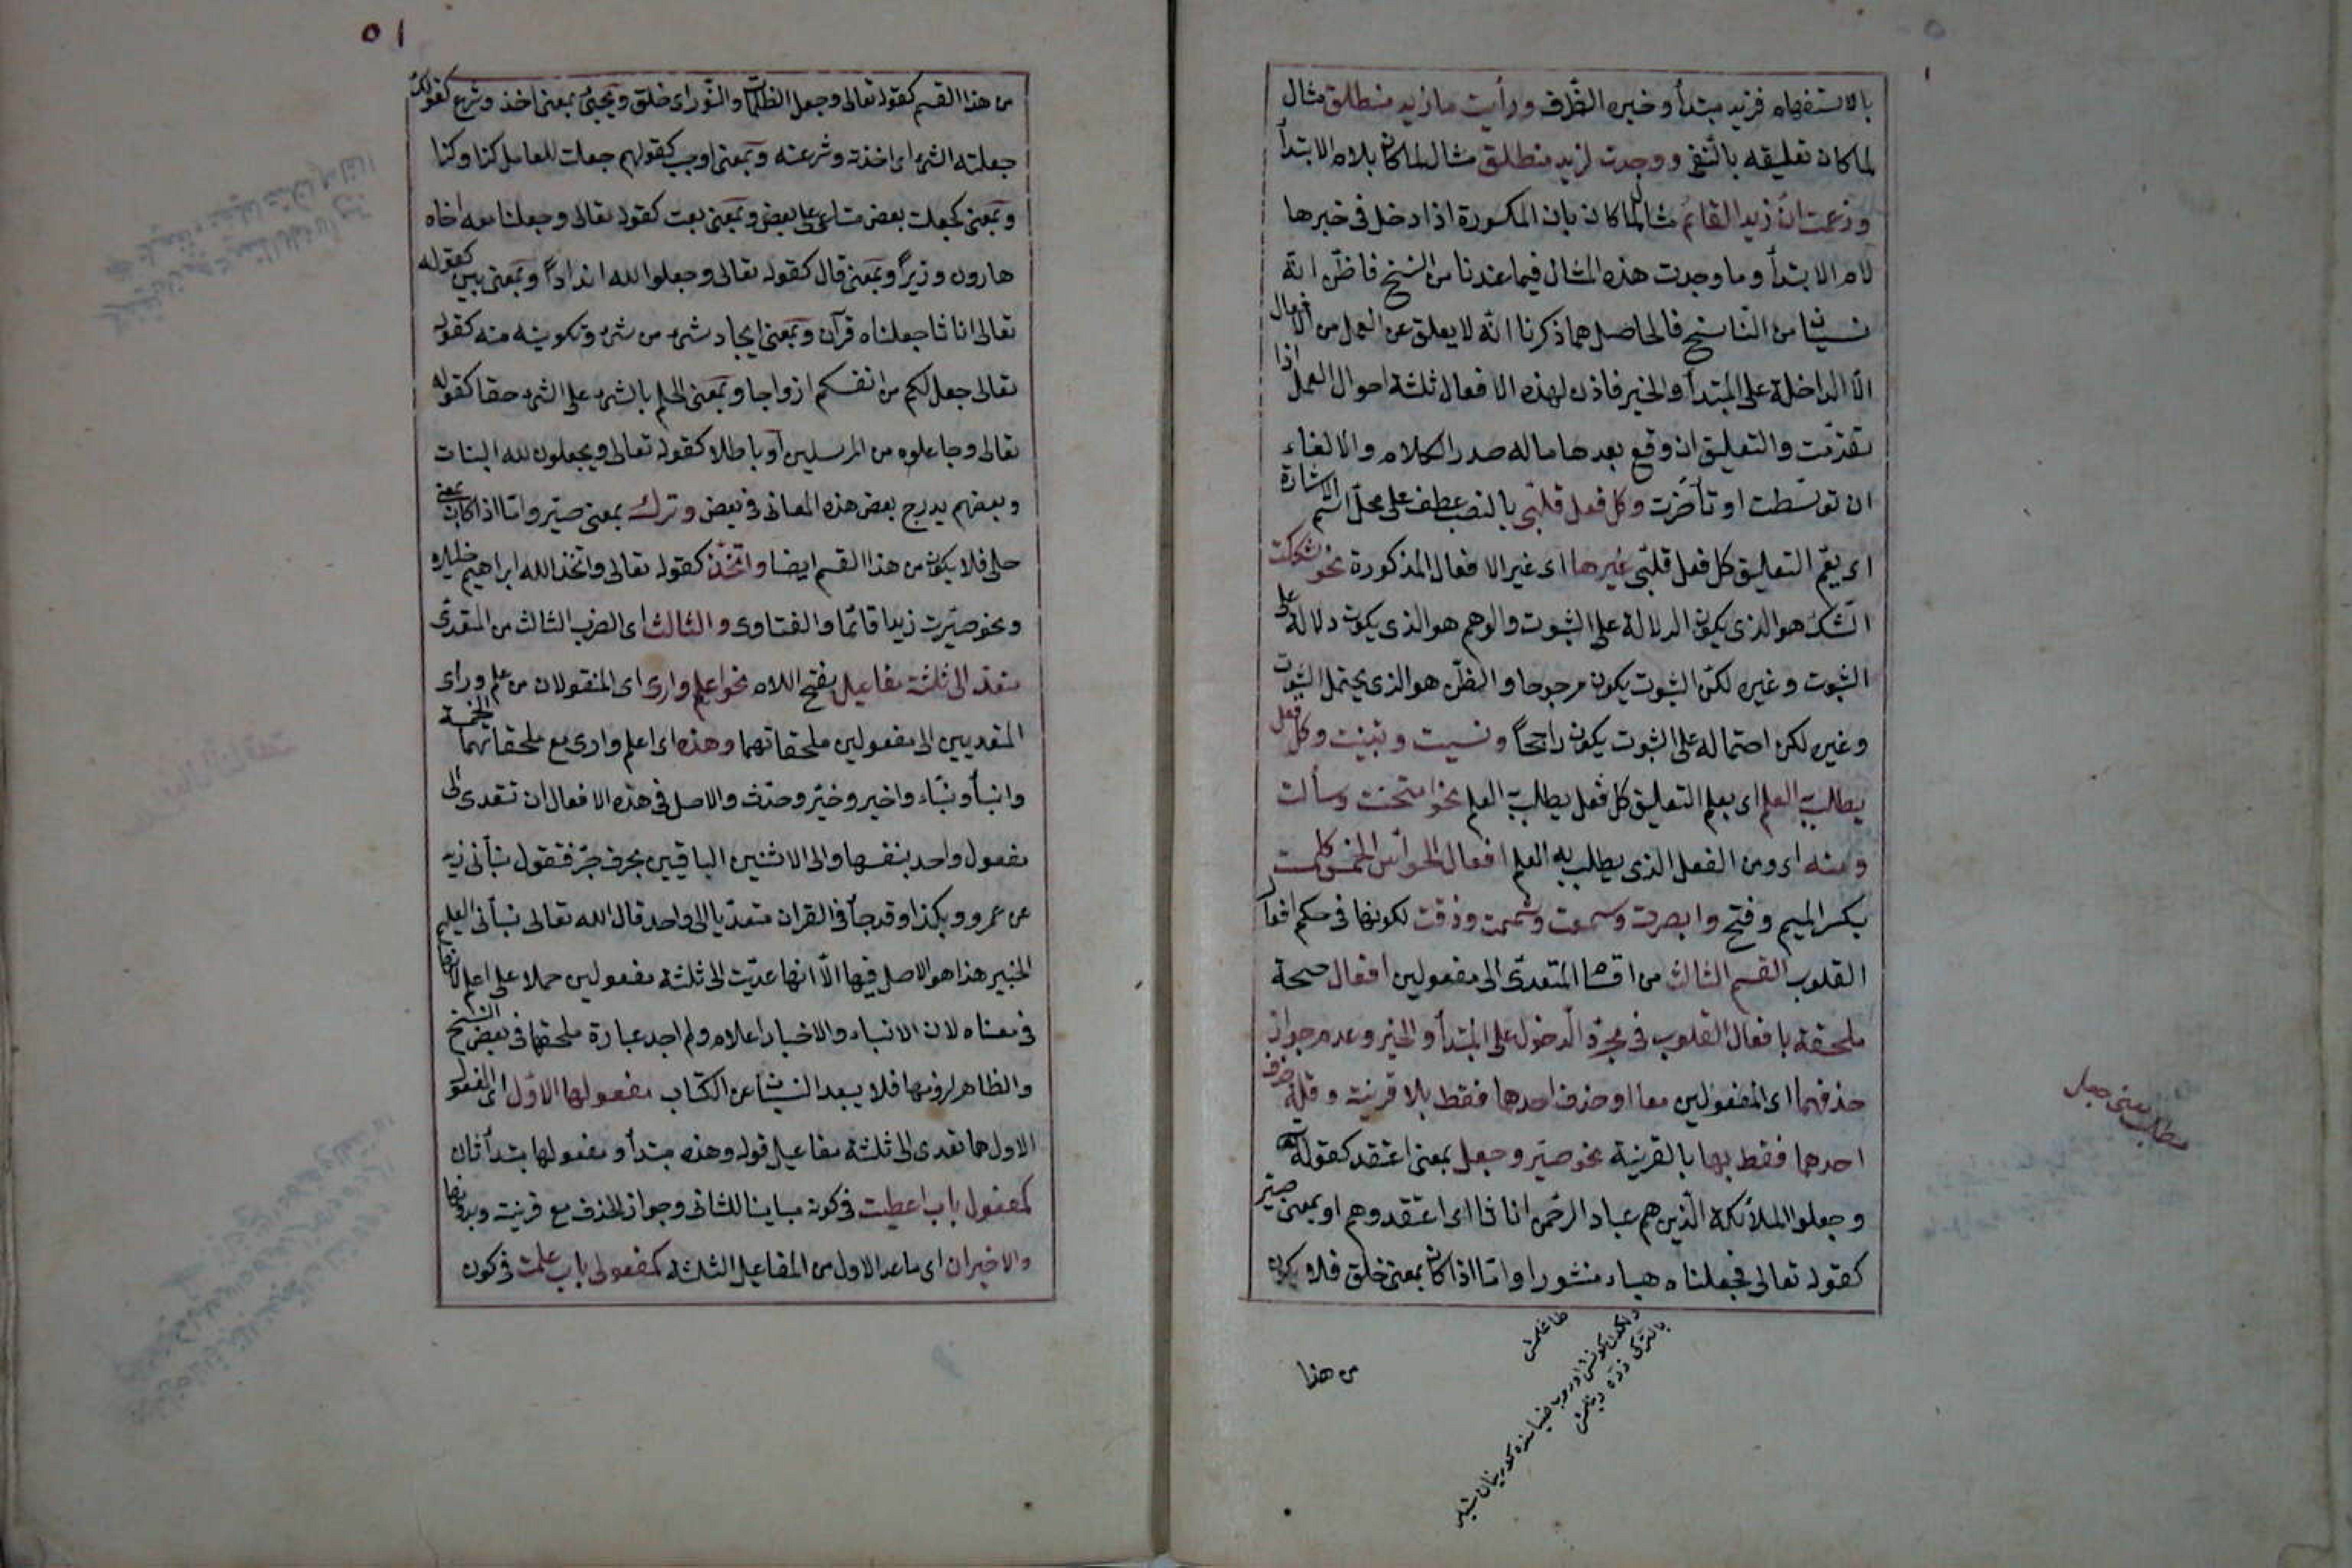 بالاستفهام فزيد مبتدأ وخبره الظرف ورأيت ما زيد منطلق مثال
لما كان تعليقه بالنفى ووجدت لزيد منطلق مثال لما كان بلام الابتدأ
وزعمت ان زيدا لقائم مثال لما كان بان المكسورة اذا دخل فى خبرها
لام الابتدأ وما وجدت هذه المثال فيما عندنا من النسخ فاظن انه
نسيان من الناسخ فالحاصل مما ذكرنا انه لا يعلق عن العمل من الافعال
الا الداخلة على المبتدأ والخبر فاذن لهذه الافعال ثلثة احوال العمل اذا
تقدمت والتعليق ان وقع بعدها ماله صدر الكلام والالغاء
ان توسطت او تأخرت وكل فعل قلبى بالنصب عطف على محل اسم الاشارة
اى يعم التعليق كل فعل قلبى غيرها اى غير الافعال المذكورة نحو شككت
الشك هو الذى يكون الدلالة على الثبوت والوهم هو الذى يكون دلالة على
الثبوت وغيره لكن الثبوت يكون مرجوحا والظن هو الذى يحتمل الثبوت
وغيره لكن احتماله على الثبوت يكون راجحاً ونسيت وتبينت وكل فعل
يطلب به العلم اى يعم التعليق كل فعل يطلب به العلم نحو امتحنت وسألت
ومنه اى ومن الفعل الذى يطلب به العلم افعال الحواس الخمس كلمست
بكسر الميم وفتح وابصرت وسمعت وشممت وذقت لكونها فى حكم افعال
القلوب القسم الثالث من اقسام المتعدى الى مفعولين افعال
ملحقة بافعال القلوب فى مجرد الدخول على المبتدأ والخبر وعدم جواز
حذفهما اى المفعولين معا او حذف احدهما فقط بلا قرينة وقلة حذف
احدهما فقط بها بالقرينة نحو صير وجعل بمعنى اعتقد كقوله
وجعلوا الملائكة الذين هم عباد الرحمن اناثا اى اعتقدوهم او بمعنى صير
كقوله تعالى فجعلناه هباء منثورا واما اذا كان بمعنى خلق فلا يكون
من هذا
مطلب معنى جعل
٥١
من هذا القسم كقوله تعالى وجعل الظلمات والنور اى خلق ويجئ بمعنى اخذ وشرع كقولك
جعلته الشئ اى اخذته وشرعته وبمعنى اوجب كقولهم جعلت للعامل كذا وكذا
وبمعنى كجعلت بعض متاعى على بعض وبمعنى بعث كقوله تعالى وجعلنا معه اخاه
هارون وزيراً وبمعنى قال كقوله تعالى وجعلوا لله انداداً وبمعنى بين كقوله
تعالى انا جعلناه قرآن وبمعنى ايجاد شئ من شئ وتكوينه منه كقوله
تعالى جعل لكم من انفسكم ازواجا وبمعنى الحكم بالشئ على الشئ حقا كقوله
تعالى وجاعلوه من المرسلين او باطلا كقوله تعالى ويجعلون لله البنات
وبعضهم يدرج بعض هذه المعانى فى بعض وترك بمعنى صير واما اذا كان بمعنى
خلى فلا يكون من هذا القسم ايضا واتخذ كقوله تعالى واتخذ الله ابراهيم خليلا
ونحو صيرت زيدا قائما والثالث اى الضرب الثالث من المتعدى
متعد الى ثلثة مفاعيل بفتح اللام نحو اعلم وارى اى المنقولان من علم وراى
المتعديين الى مفعولين ملحقاتهما وهذه اى اعلم وارى مع ملحقاتهما الخمسة
وانبأ ونبأ واخبر وخبر وحدث والاصل فى هذه الافعال ان تتعدى الى
مفعول واحد بنفسها والى الاثنين الباقيين بحرف جر فتقول نبأنى زيد
عن عمرو وبكذا وقد جاء فى القران متعديا الى واحد قال الله تعالى نبأنى العليم
الخبير هذا هو الاصل فيها الا انها عديت الى ثلثة مفعولين حملا على اعلم لانها
فى معناه لان الانباء والاخبار اعلام ولم اجد عبارة ملحقها فى بعض النسخ
والظاهر لزومها فلا يبعد النسيان عن الكتاب مفعولها الاول اى المفعول
الاول مما تعدى الى ثلثة مفاعيل قوله وهذه مبتدأ ومفعولها مبتدأ ثان
كمفعول باب اعطيت فى كونه مباينا للثانى وجواز الحذف مع قرينة وبدونها
والاخيران اى ما عدا الاول من المفاعيل الثلثة كمفعولى باب علمت فى كون